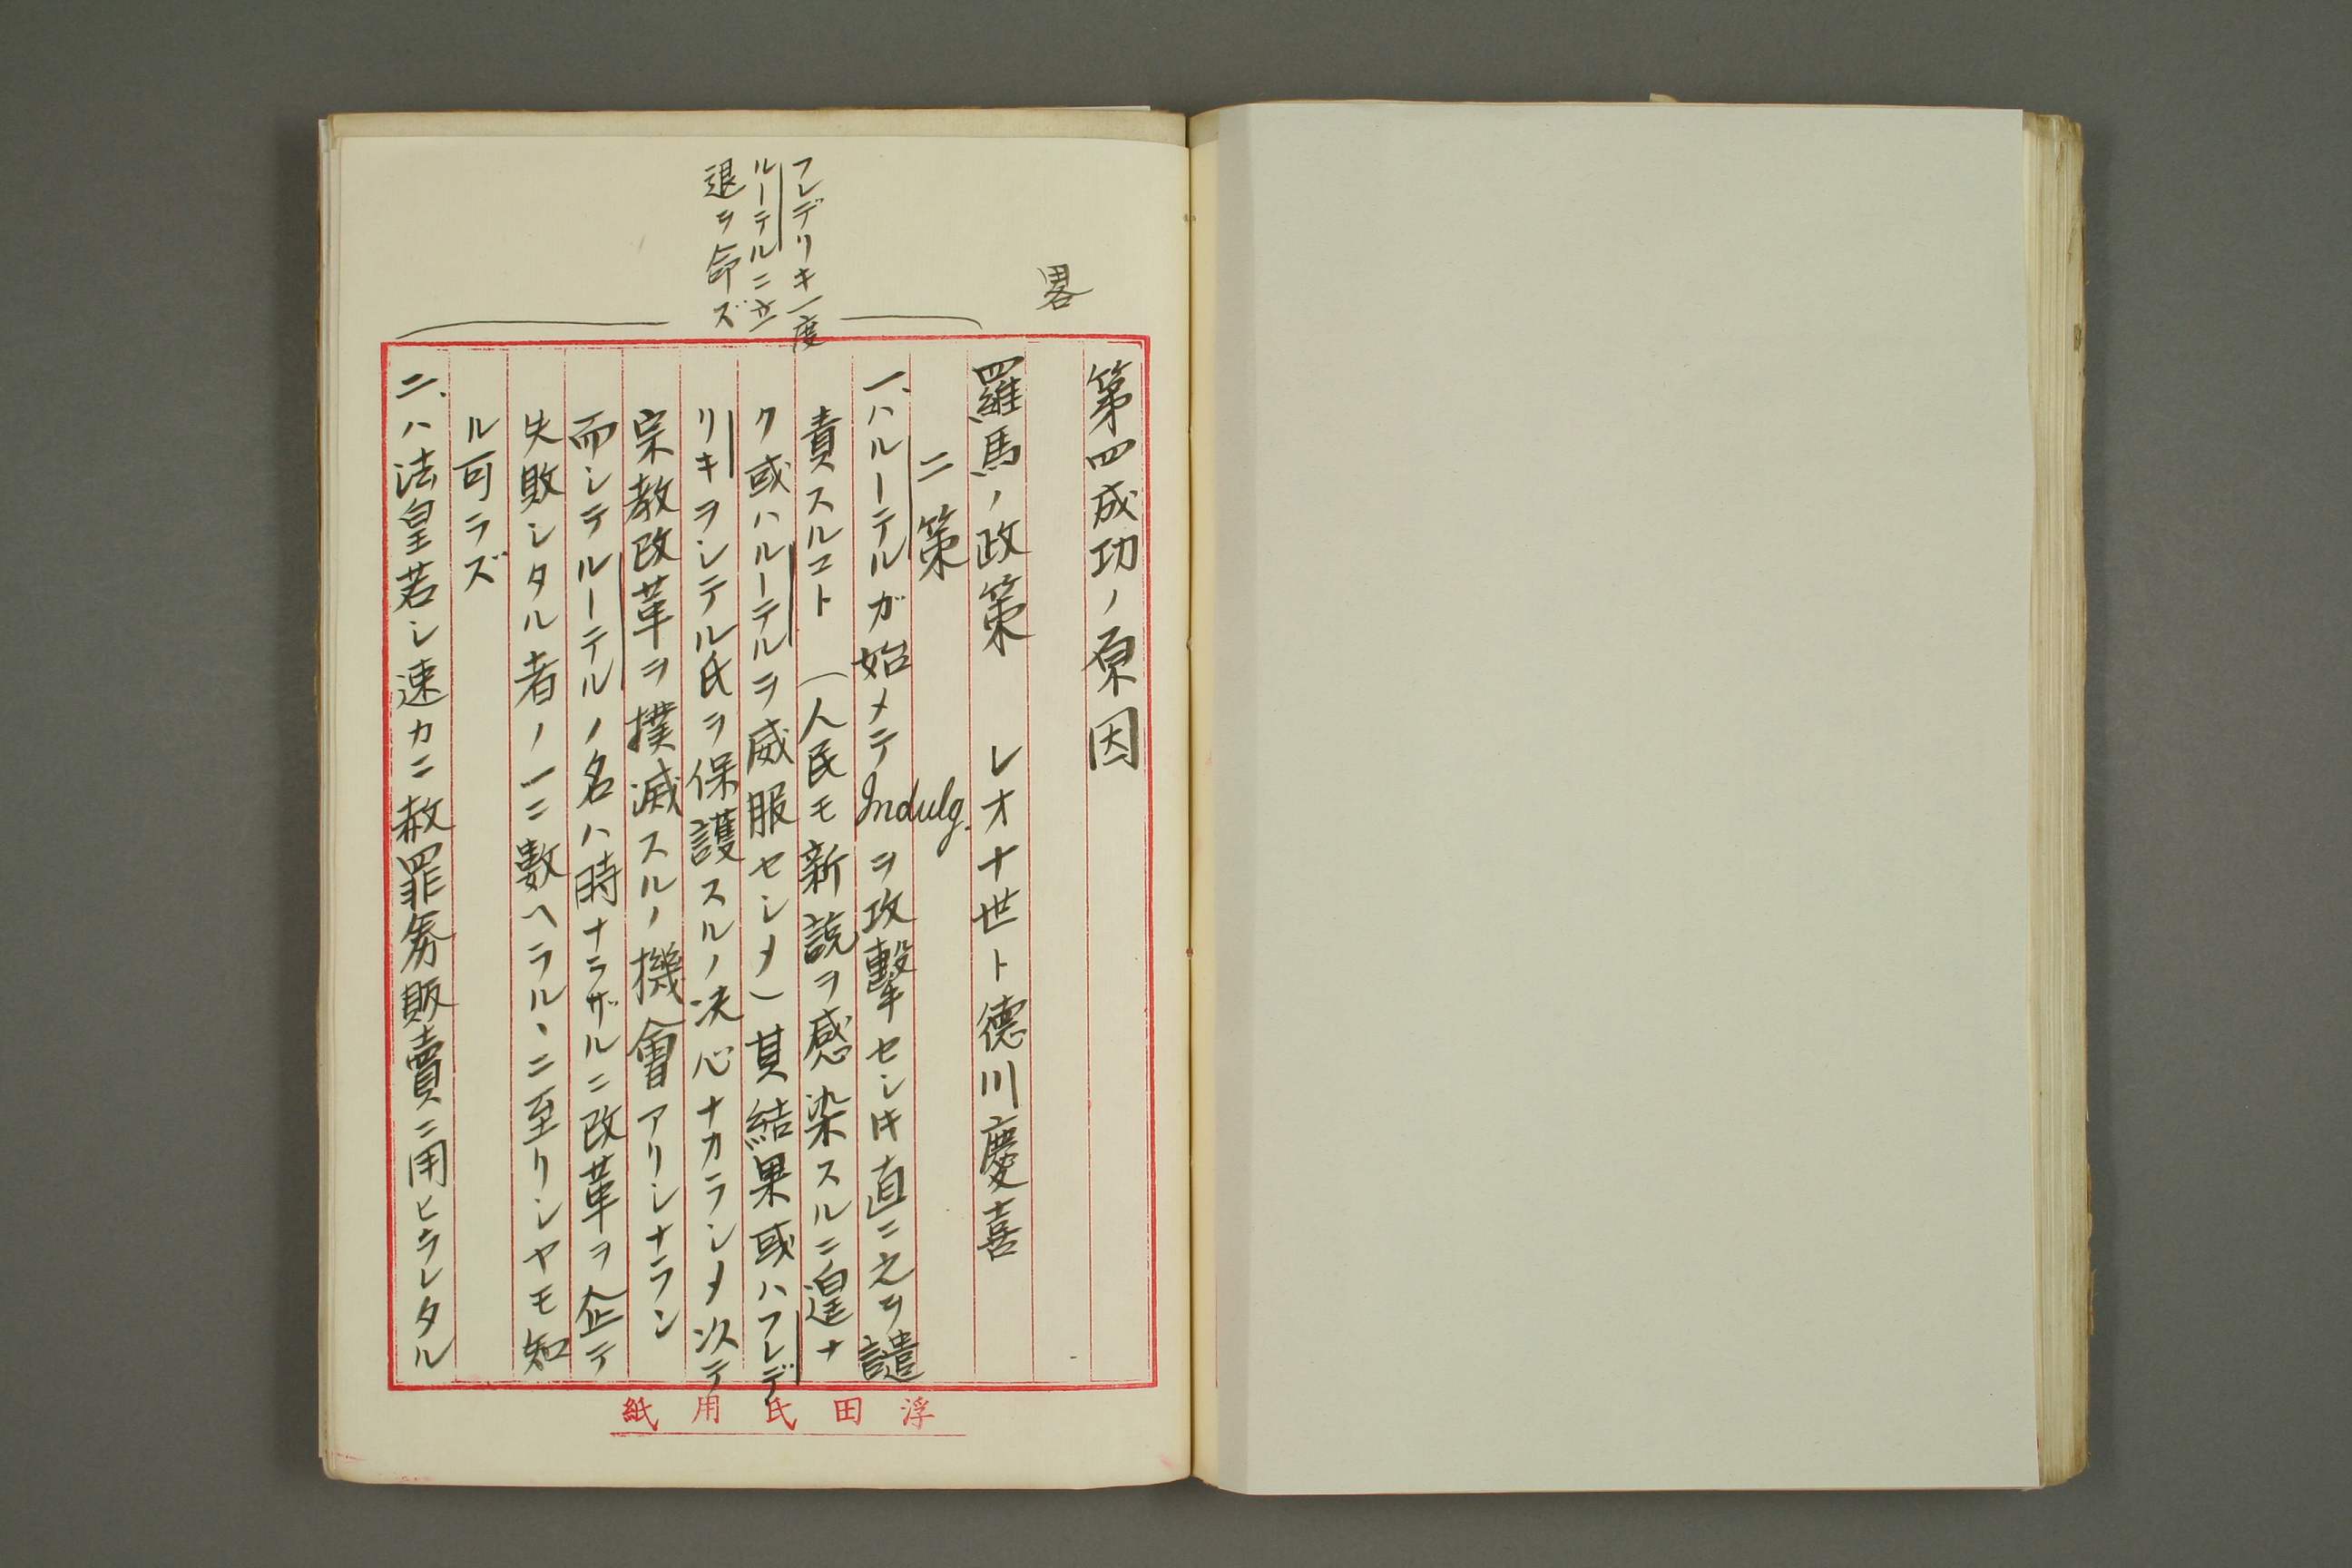 畧
フレデリキ一度
ルーテルニ立
退ヲ命ズ
第四成功ノ原因
羅馬ノ政策　レオ十世ト德川慶喜
二策
一、ハルーテルガ始メテIndulg.ヲ攻擊セシ𪜈直ニ之ヲ譴
責スルコト（人民モ新說ヲ感染スルニ遑ナ
ク或ハルーテルヲ威服セシメ）其結果或ハフレデ
リキヲシテル氏ヲ保護スルノ决心ナカラシメ次テ
宗教改革ヲ撲滅スルノ機會アリシナラン
而シテルーテルノ名ハ時ナラザルニ改革ヲ企テ
失敗シタル者ノ一ニ數ヘラルヽニ至リシヤモ知
ル可ラズ
二、ハ法皇若シ速カニ赦罪券販賣ニ用ヒラレタル
浮田氏用紙